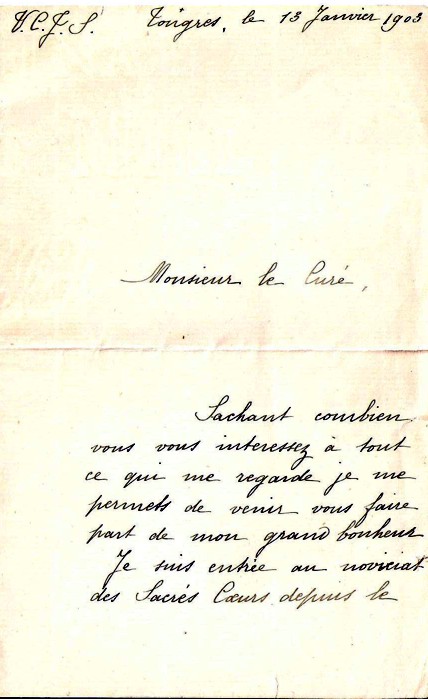 V.C.J.S. Tongres, le 13 Janvier 1903
Monsieur le Curé,
Sachant combien
vous vous interessez à tout
ce qui me regarde je me
permets de venir vous faire
part de mon grand bonheur
Je suis entrée au noviciat
des Sacrés Cœurs depuis le